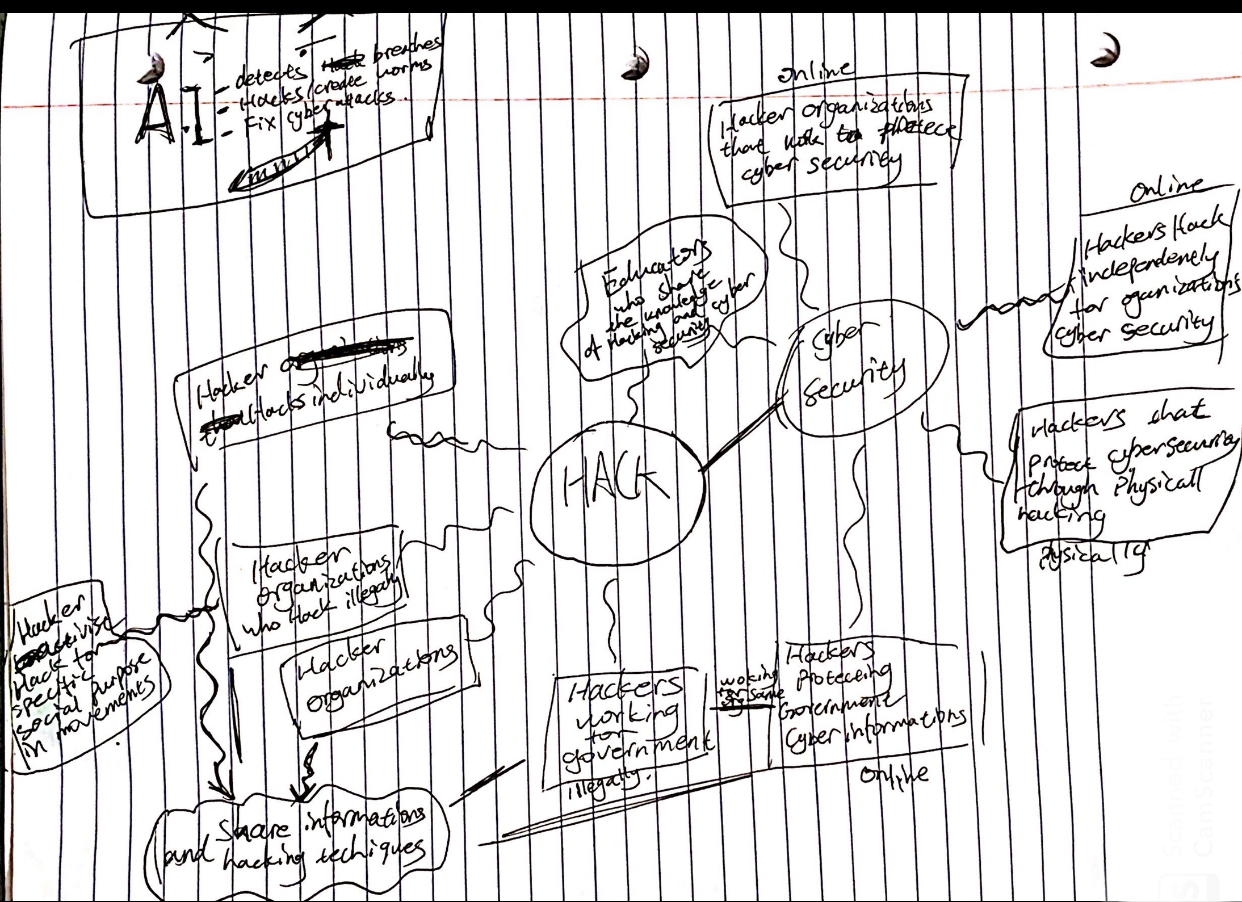 AI
- detects breaches
- Hacks/create worms
- Fix Cyber attacks.
Online
Hacker organizations
that to
cyber security
Online
Hackers Hack
independenely
for oganizations
cyber security
Educators
who share
the knowledge
of Hacking and cyber
security
Cyber
Security
Hacker
Hacks individually
HACK
Hackers that
Protect cybersecurity
through Physicall
hacking
Pysically
Hacker
organizations
who Hack illegally
Hacker
Hack for
specific
social purpose
in movements
Hacker
organizations
Hackers
working
for
government
illegally.
woking
for same
Hackers
Proteceing
Government
Cyber informations
Online
Share informations
and hacking techiques
Scanned with
CamScanner